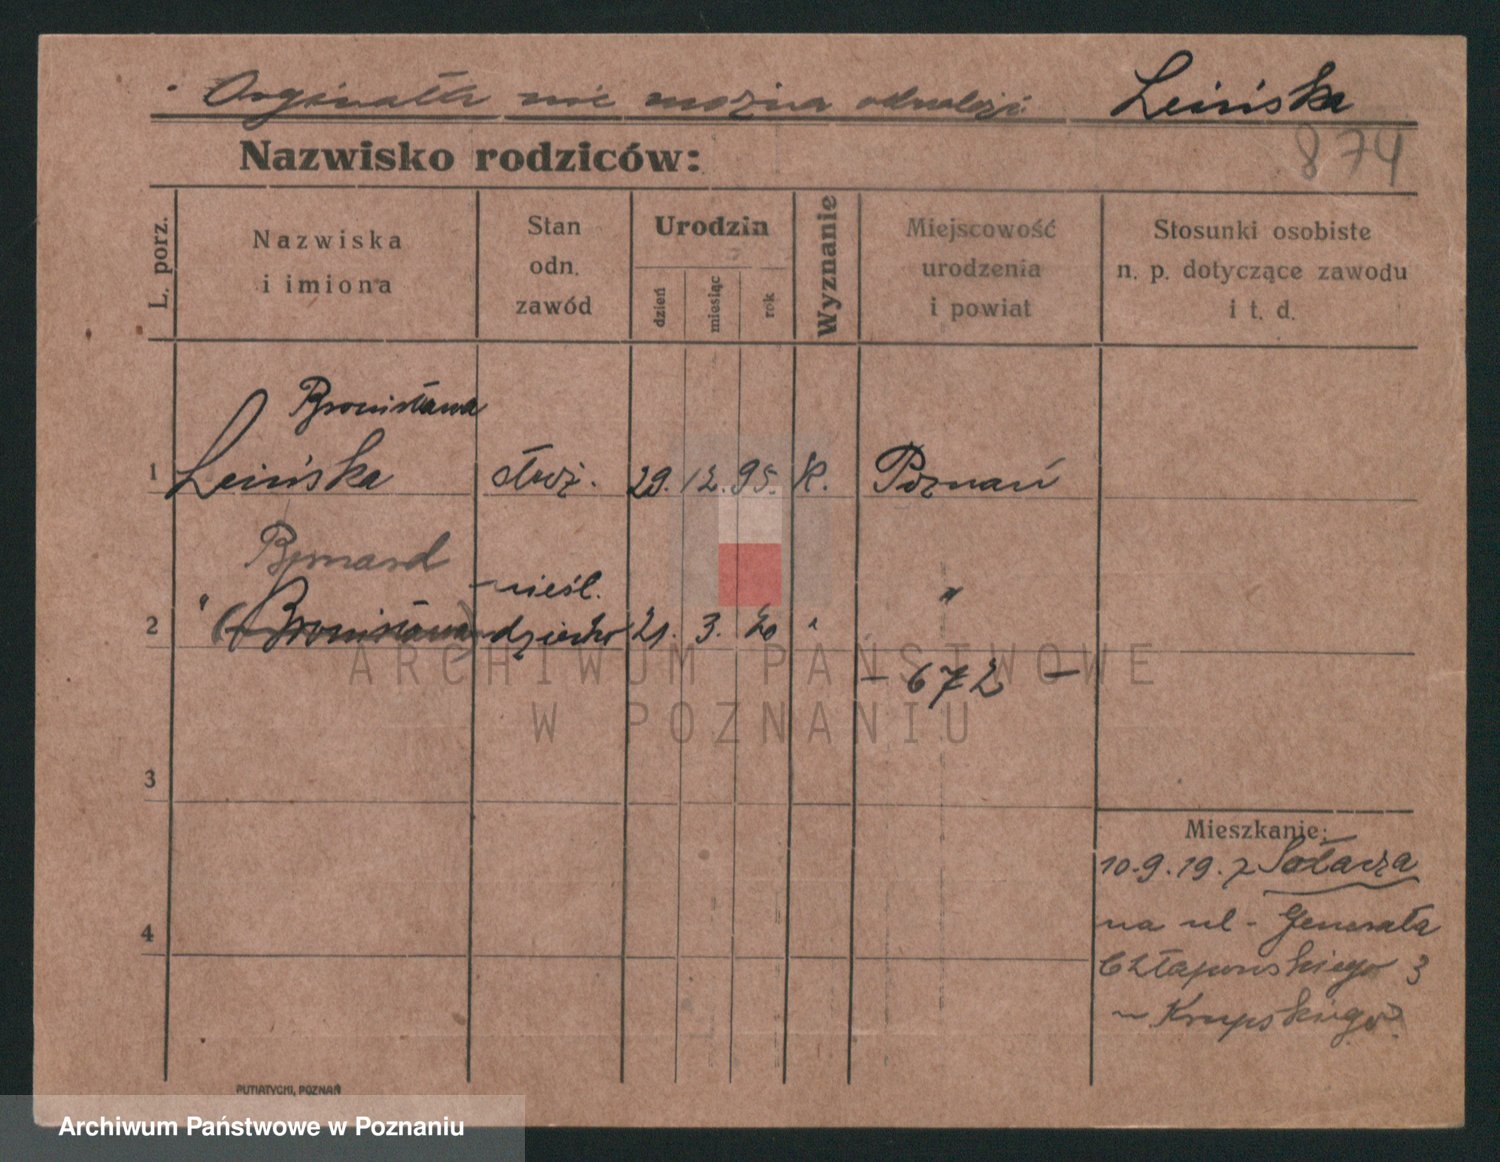 Orginału nie można odnaleźć Leińska
874
Nazwisko rodziców:
L. porz.
Nazwiska
i imiona
Stan
odn.
zawód
Urodzin
dzień
miesiąc
rok
Wyznanie
Miejscowość
urodzenia
i powiat
Stosunki osobiste
n. p. dotyczące zawodu
i t. d.
Bronisława
1 Leińska służ. 29. 12. 95. K. Poznań
Bernard
nieśl.
2 " (Bronisława) dziecko 21. 3. 20 " "
- 672 -
3
4
Mieszkanie:
10.9.19. z Sołacza
na ul. Generała
Chłapowskiego 3
u Krupskiego
PUTIATYCKI, POZNAŃ
ARCHIWUM PAŃSTWOWE
W POZNANIU
Archiwum Państwowe w Poznaniu